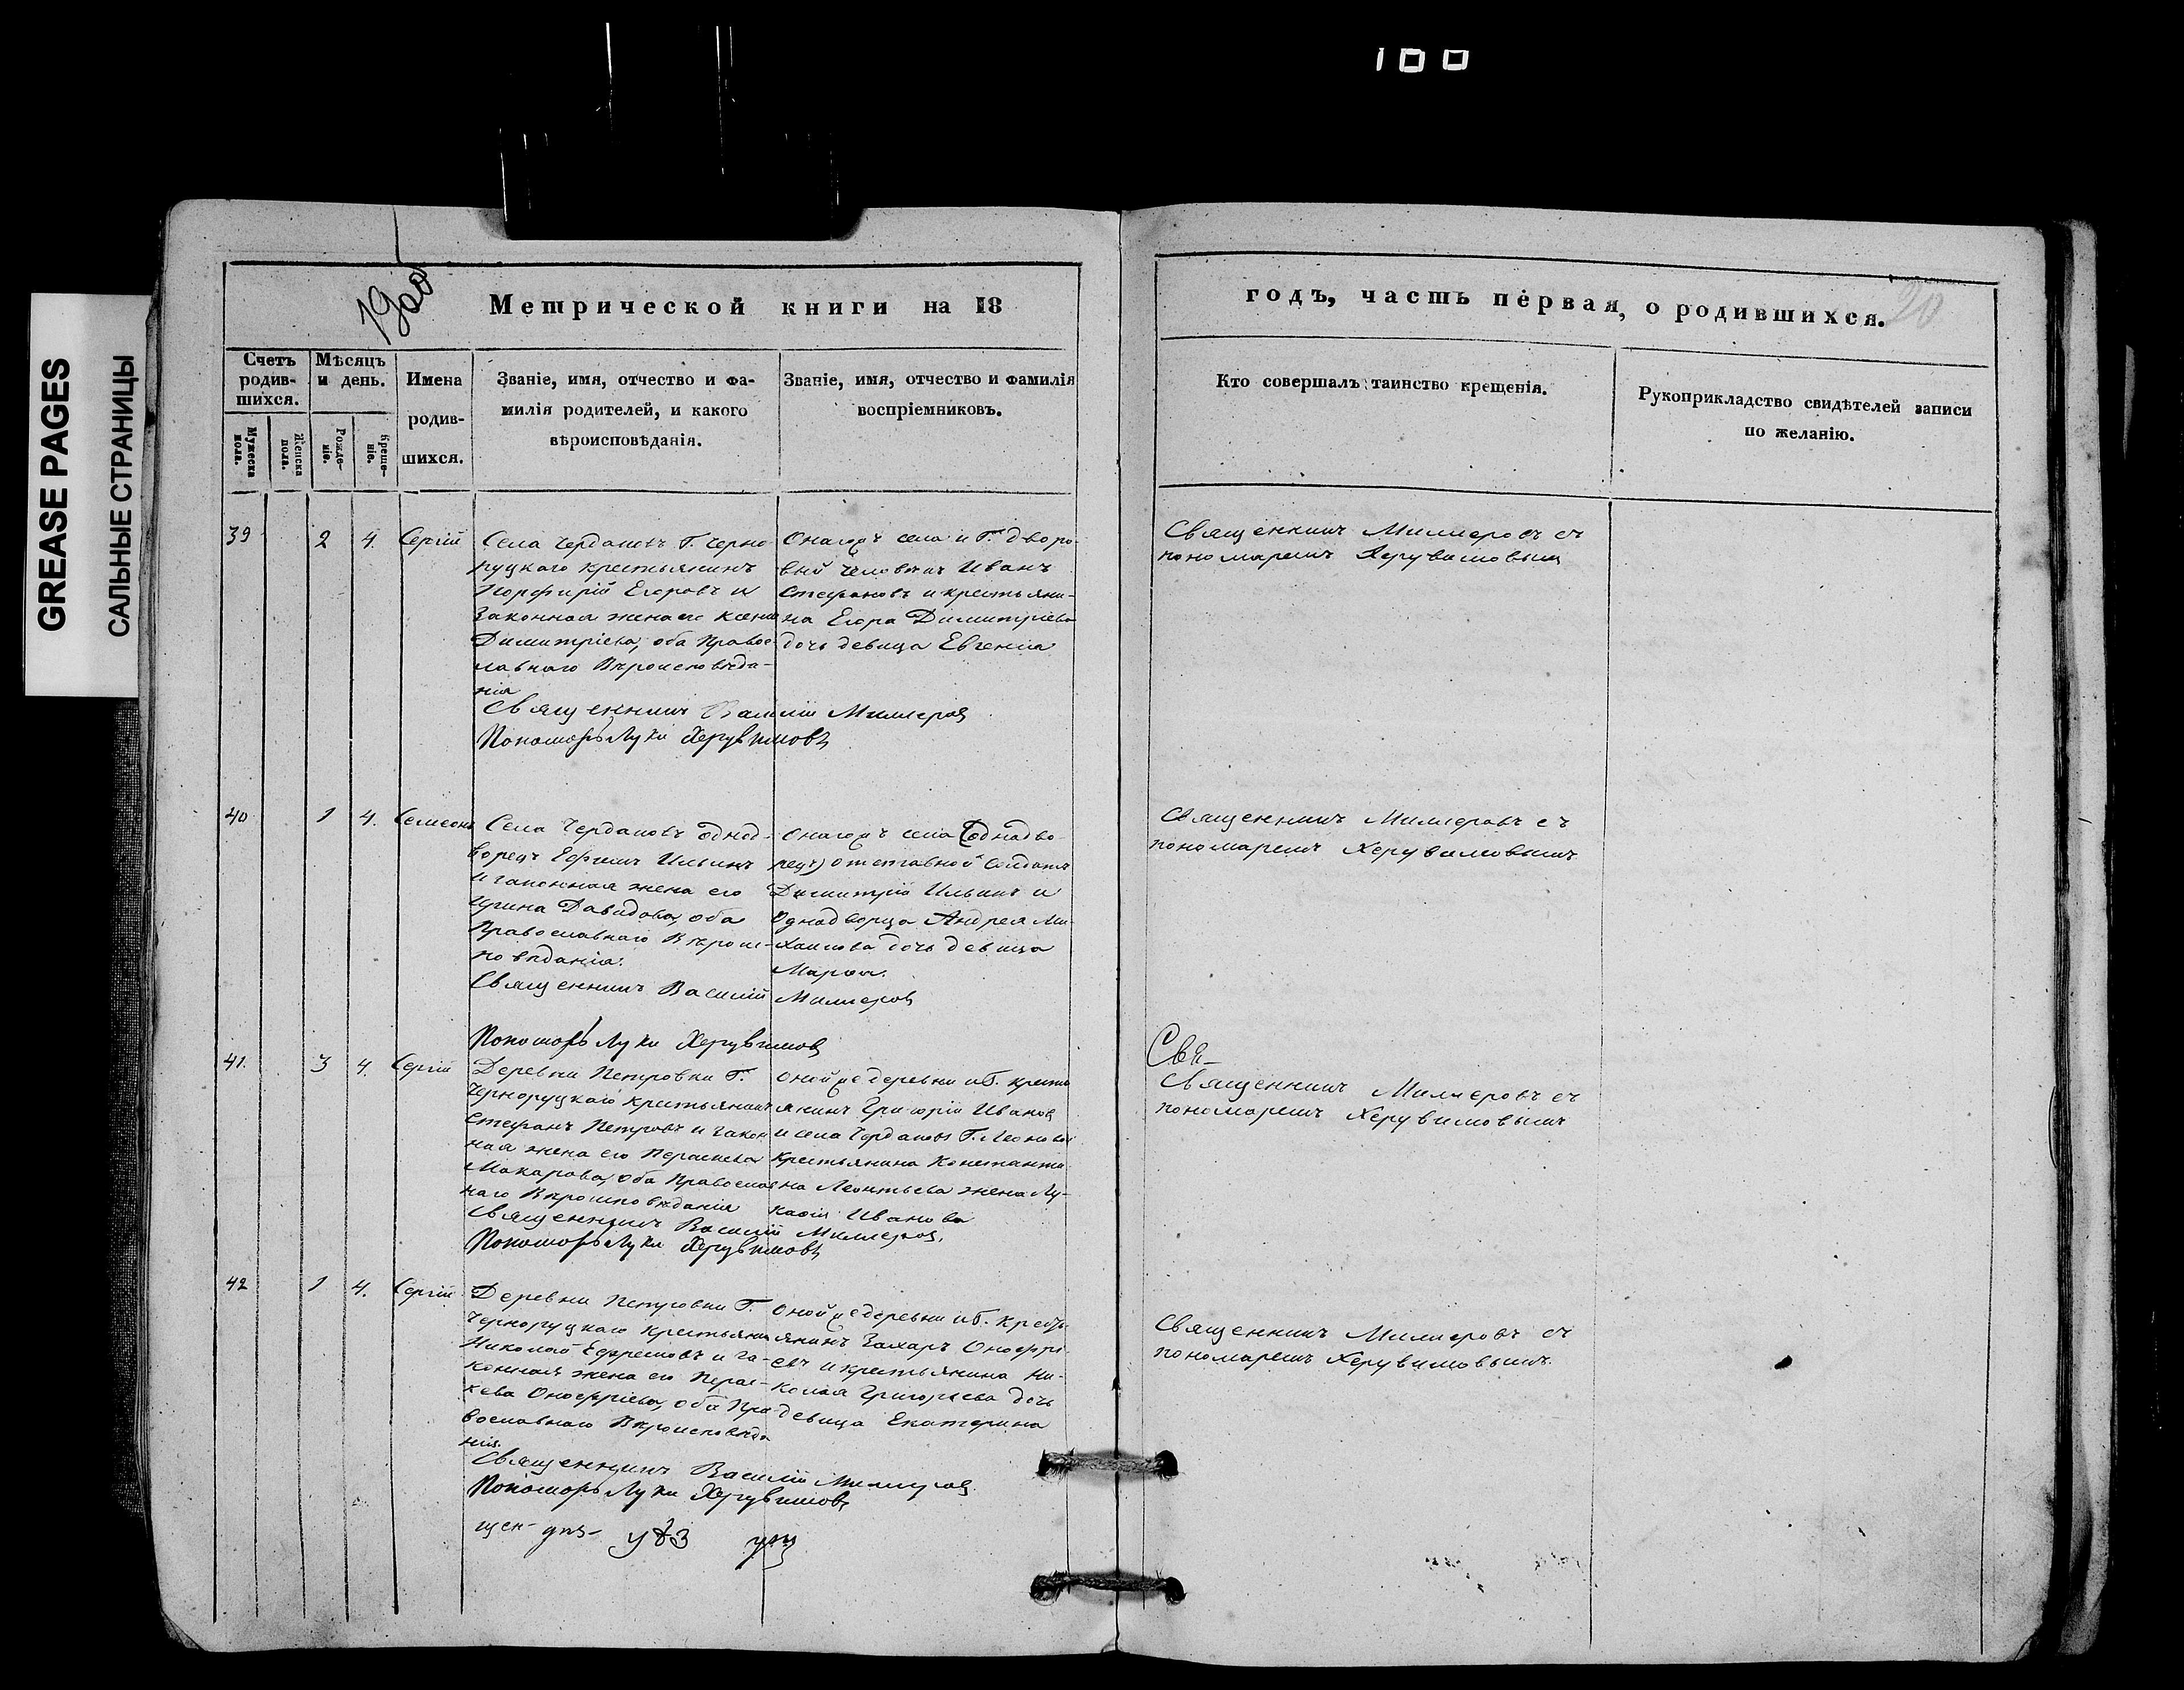 100
GREASE PAGES
САЛЬНЫЕ СТРАНИЦЫ
Метрической книги на 18
годъ, часть первая, о родившихся.
20
Счетъ родившихся.
Мужеска пола.
Женска пола.
Мѣсяцъ и день.
Рожденіе.
Крещеніе.
Имена
родив-
шихся.
Званіе, имя, отчество и фа-
милія родителей, и какого
вѣроисповѣданія.
Званіе, имя, отчество и фамилія
воспріемниковъ.
Кто совершалъ таинство крещенія.
Рукоприкладство свидѣтелей записи
по желанію.
39 2 4. Сергій
Села Чердаковъ Г. Черно
руцкаго крестьянинъ
Порфирій Егоровъ и
законная жена его Ксенія
Димитріева, оба Правос
лавнаго Вѣроисповѣда-
нія
Священникъ Василій Миллеровъ
Пономарь Лука Херувимовъ
Онагожъ села и Г. дворо-
вый человѣкъ Иванъ
Стефановъ и крестьяни-
на Егора Димитріева
дочь девица Евгенія
Священникъ Миллеровъ съ
пономаремъ Херувимовымъ
40 1 4. Симеонъ
Села Чердаковъ однод-
ворецъ Ефимъ Ильинъ
и законная жена его
Ирина Давидова, оба
Православнаго Вѣроис-
повѣданія.
Священникъ Василій Миллеровъ
Пономарь Лука Херувимовъ
Онагожъ села (однадво-
рецъ) отставной Солдатъ
Димитрій Ильинъ и
Однадворца Андрея Ми-
хаилова дочь девица
Марѳа.
Священникъ Миллеровъ съ
пономаремъ Херувимовымъ
41. 3 4. Сергій
Деревни Петровки Г.
Черноруцкаго крестьянинъ
Стефанъ Петровъ и закон
ная жена его Параскева
Макарова, оба Православ
наго Вѣроисповѣданія
Священникъ Василій Миллеровъ.
Пономарь Лука Херувимовъ
Оной же деревни и Г. кресть
янинъ Григорій Ивановъ
и села Чердаковъ Г. Леоновой
крестьянина Константи
на Леонтьева жена Лу-
кія Иванова
Свя-
Священникъ Миллеровъ съ
пономаремъ Херувимовымъ
42 1 4. Сергій
Деревни Петровки Г.
Черноруцкаго крестьянинъ
Николай Ефремовъ и за-
конная жена его Парас-
кева Оноефріева, оба Пра
вославнаго Вѣроисповѣда
нія.
Священникъ Василій Миллеровъ
Пономарь Лука Херувимовъ
Оной же деревни и Г. кресть
янинъ Захаръ Оноефрі-
евъ и крестьянина Ни-
колая Григорьева дочь
девица Екатерина
Священникъ Миллеровъ съ
пономаремъ Херувимовымъ.